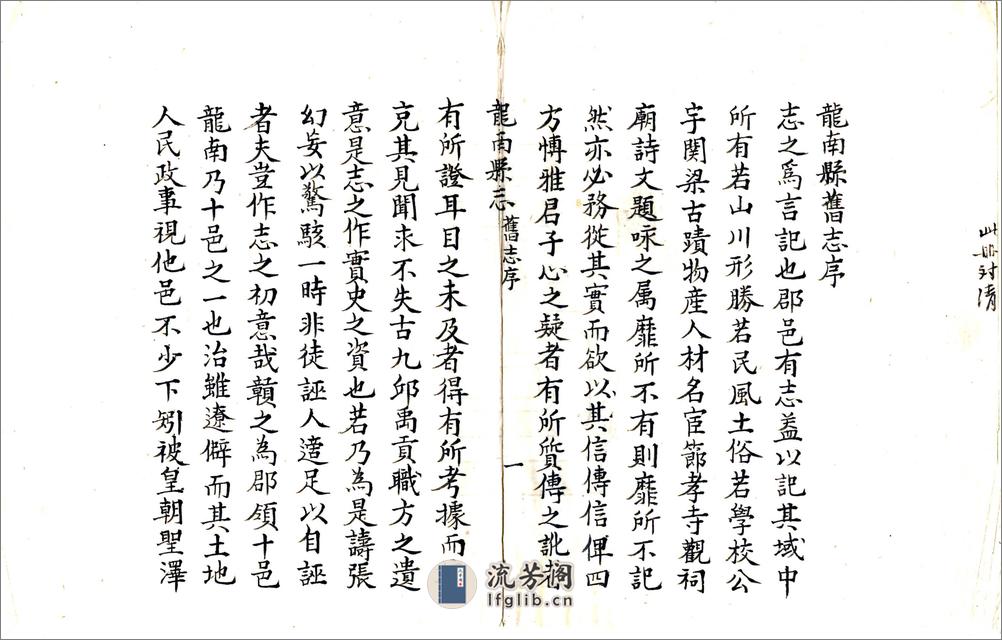 此毋討清
龍南縣舊志序
志之爲言記也郡邑有志盖以記其域中
所有若山川形勝若民風土俗若學校公
宇関梁古蹟物産人材名宦節孝寺觀祠
廟詩文題咏之属靡所不有則靡所不記
然亦必務從其實而欲以其信傳信俾四
方愽雅君子心之疑者有所質傳之訛者
龍南縣志 舊志序 一
有所證耳目之未及者得有所考據而
克其見聞求不失古九邱禹貢職方之遺
意是志之作實史之資也若乃為是譸張
幻妄以驚駭一時非徒誣人適足以自誣
者夫豈作志之初意哉贛之為郡領十邑
龍南乃十邑之一也治雖遼僻而其土地
人民政事視他邑不少下矧被皇朝聖澤
流芳阁
lfglib.cn